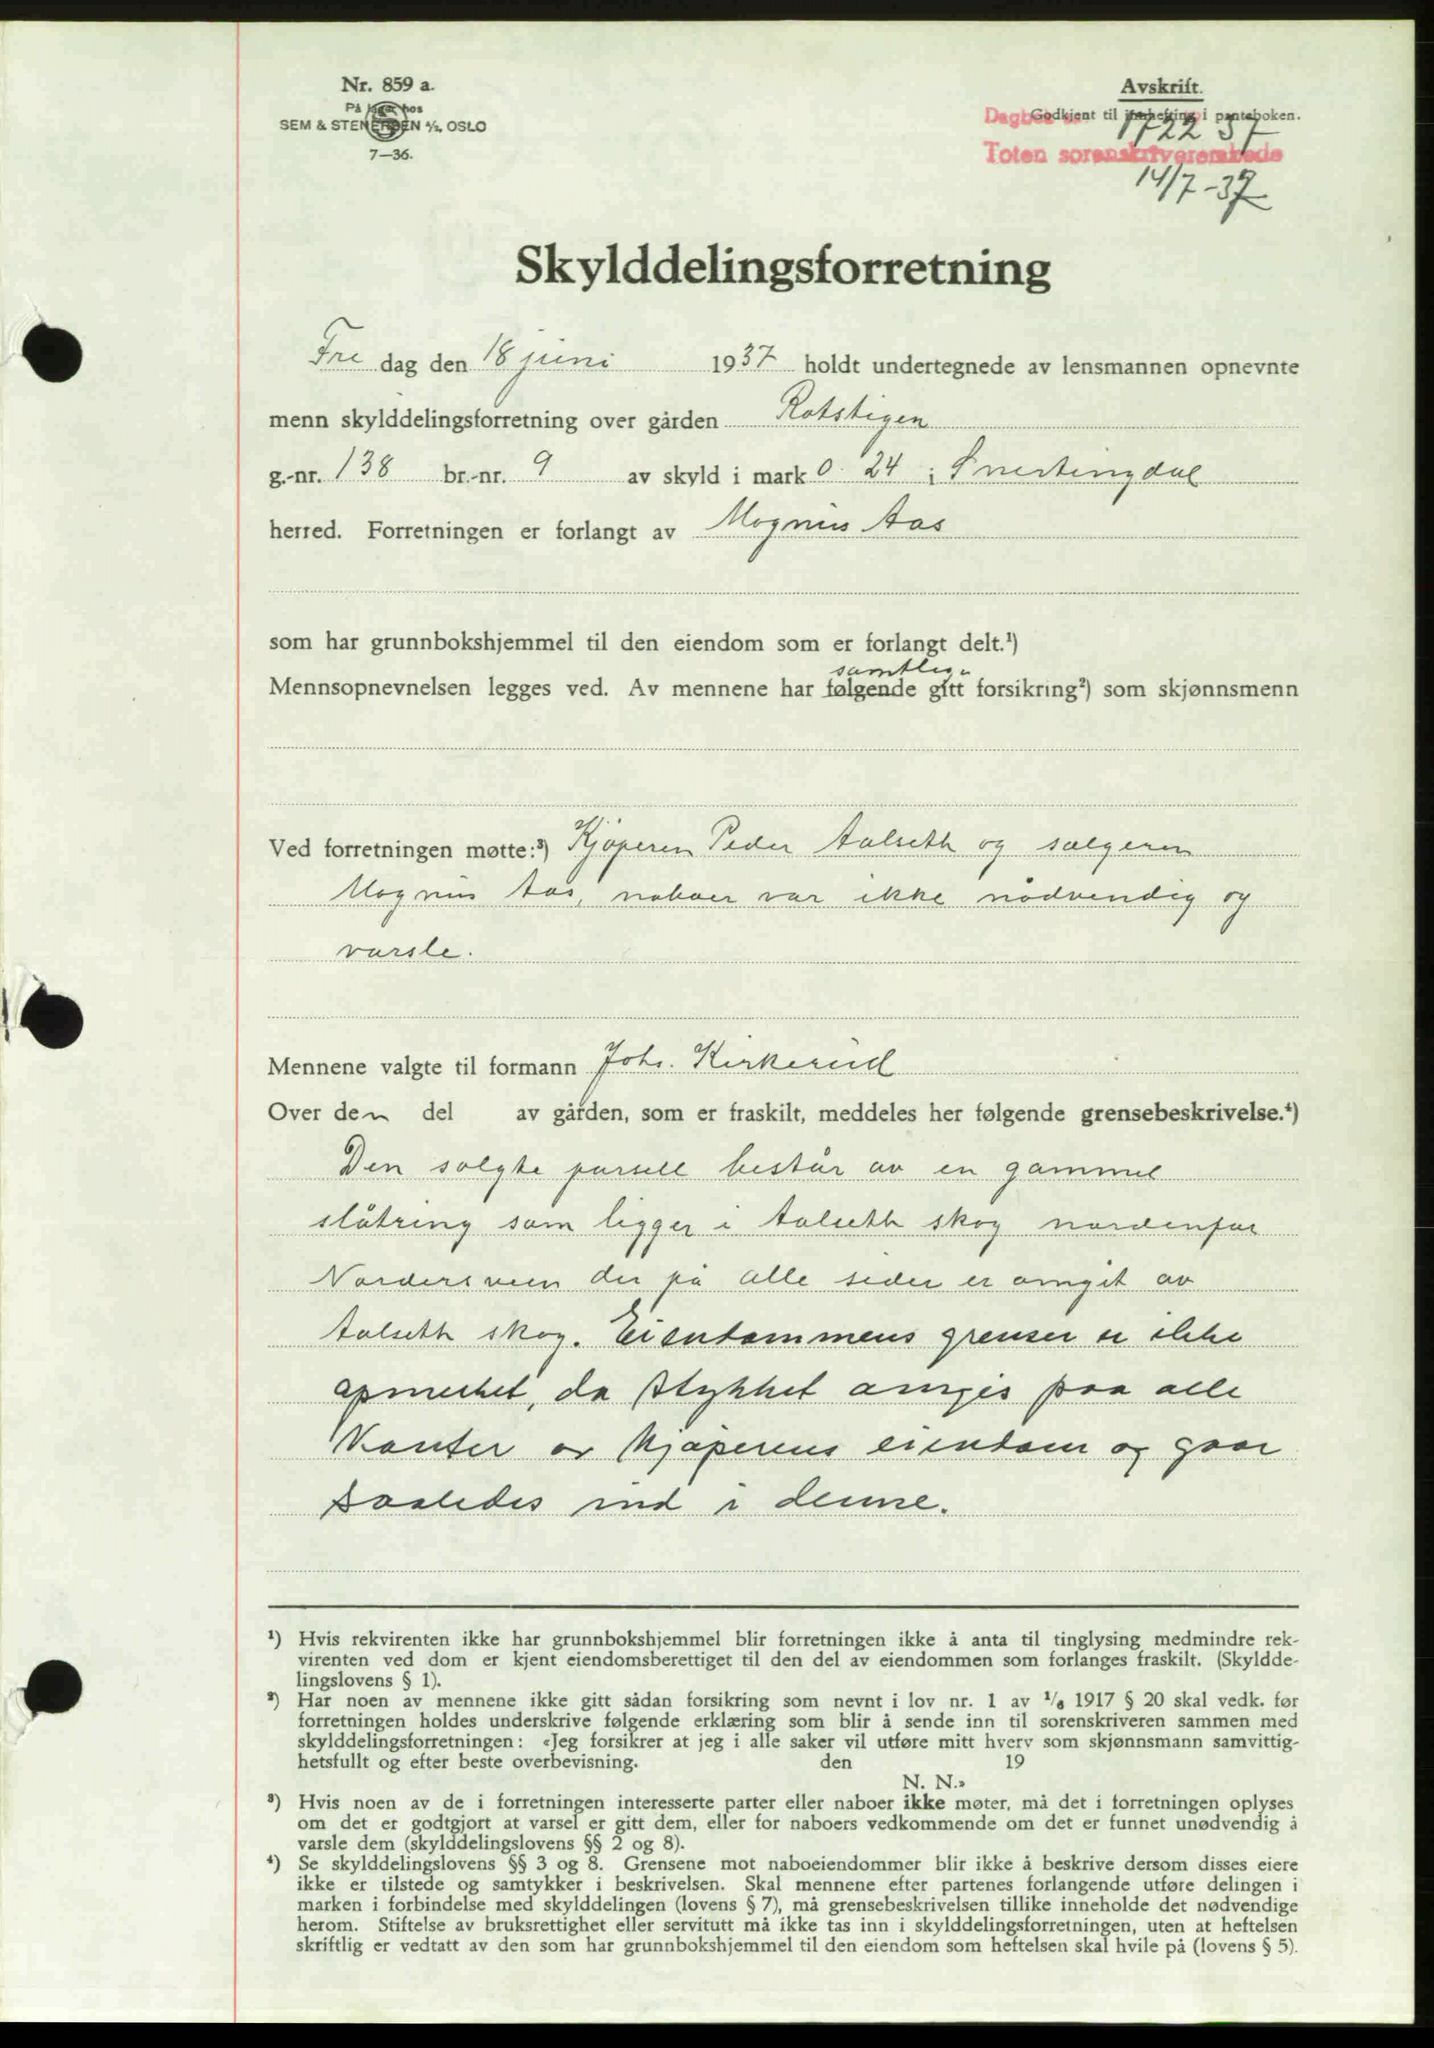 Nr. 859 a.
På lager hos
SEM & STENERSEN A/S, OSLO
7—36.
Avskrift.
Godkjent til innhefting i panteboken.
Dagbok nr. 1722 37
Toten sorenskriverembede
14/7-37
Skylddelingsforretning
Fre dag den 18 juni 1937 holdt undertegnede av lensmannen opnevnte
menn skylddelingsforretning over gården Rotstigen
g.-nr. 138 br.-nr. 9 av skyld i mark 0.24 i Snertingdal
herred. Forretningen er forlangt av Magnus Aas
som har grunnbokshjemmel til den eiendom som er forlangt delt.¹)
samtlige
Mennsopnevnelsen legges ved. Av mennene har følgende gitt forsikring²) som skjønnsmenn
Ved forretningen møtte:³) Kjøperen Peder Aalseth og sælgeren
Magnus Aas, naboer var ikke nødvendig og
varsle.
Mennene valgte til formann Johs. Kirkerud
Over den del av gården, som er fraskilt, meddeles her følgende grensebeskrivelse.⁴)
Den solgte parsell består av en gammel
slåtring som ligger i Aalseth skog nordenfor
Nordersveen der på alle sider er omgit av
Aalseth skog. Eiendommens grenser er ikke
opmerket, da stykket omgis paa alle
Kanter av kjøperens eiendom og gaar
saaledes ind i denne.
¹) Hvis rekvirenten ikke har grunnbokshjemmel blir forretningen ikke å anta til tinglysing medmindre rek-
virenten ved dom er kjent eiendomsberettiget til den del av eiendommen som forlanges fraskilt. (Skyldde-
lingslovens § 1).
²) Har noen av mennene ikke gitt sådan forsikring som nevnt i lov nr. 1 av ¹/₆ 1917 § 20 skal vedk. før
forretningen holdes underskrive følgende erklæring som blir å sende inn til sorenskriveren sammen med
skylddelingsforretningen: «Jeg forsikrer at jeg i alle saker vil utføre mitt hverv som skjønnsmann samvittig-
hetsfullt og efter beste overbevisning. den 19
N. N.»
³) Hvis noen av de i forretningen interesserte parter eller naboer ikke møter, må det i forretningen oplyses
om det er godtgjort at varsel er gitt dem, eller for naboers vedkommende om det er funnet unødvendig å
varsle dem (skylddelingslovens §§ 2 og 8).
⁴) Se skylddelingslovens §§ 3 og 8. Grensene mot naboeiendommer blir ikke å beskrive dersom disses eiere
ikke er tilstede og samtykker i beskrivelsen. Skal mennene efter partenes forlangende utføre delingen i
marken i forbindelse med skylddelingen (lovens § 7), må grensebeskrivelsen tillike inneholde det nødvendige
herom. Stiftelse av bruksrettighet eller servitutt må ikke tas inn i skylddelingsforretningen, uten at heftelsen
skriftlig er vedtatt av den som har grunnbokshjemmel til den eiendom som heftelsen skal hvile på (lovens § 5).